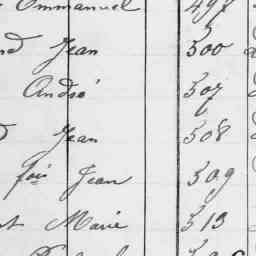 Emmanuel 497
Jean 500
André 507
Jean 508
fois Jean 509
Marie 513